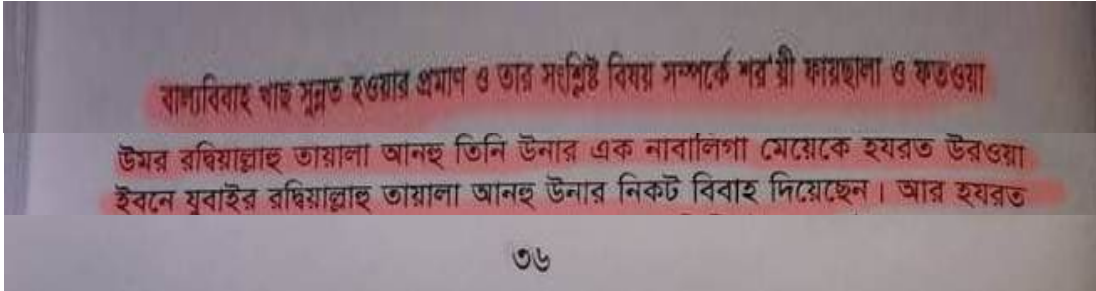 বাল্যবিবাহ খাছ সুন্নত হওয়ার প্রমাণ ও তার সংশ্লিষ্ট বিষয় সম্পর্কে শর'য়ী ফায়ছালা ও ফতওয়া
উমর রদ্বিয়াল্লাহু তায়ালা আনহু তিনি উনার এক নাবালিগা মেয়েকে হযরত উরওয়া
ইবনে যুবাইর রদ্বিয়াল্লাহু তায়ালা আনহু উনার নিকট বিবাহ দিয়েছেন। আর হযরত
৩৬